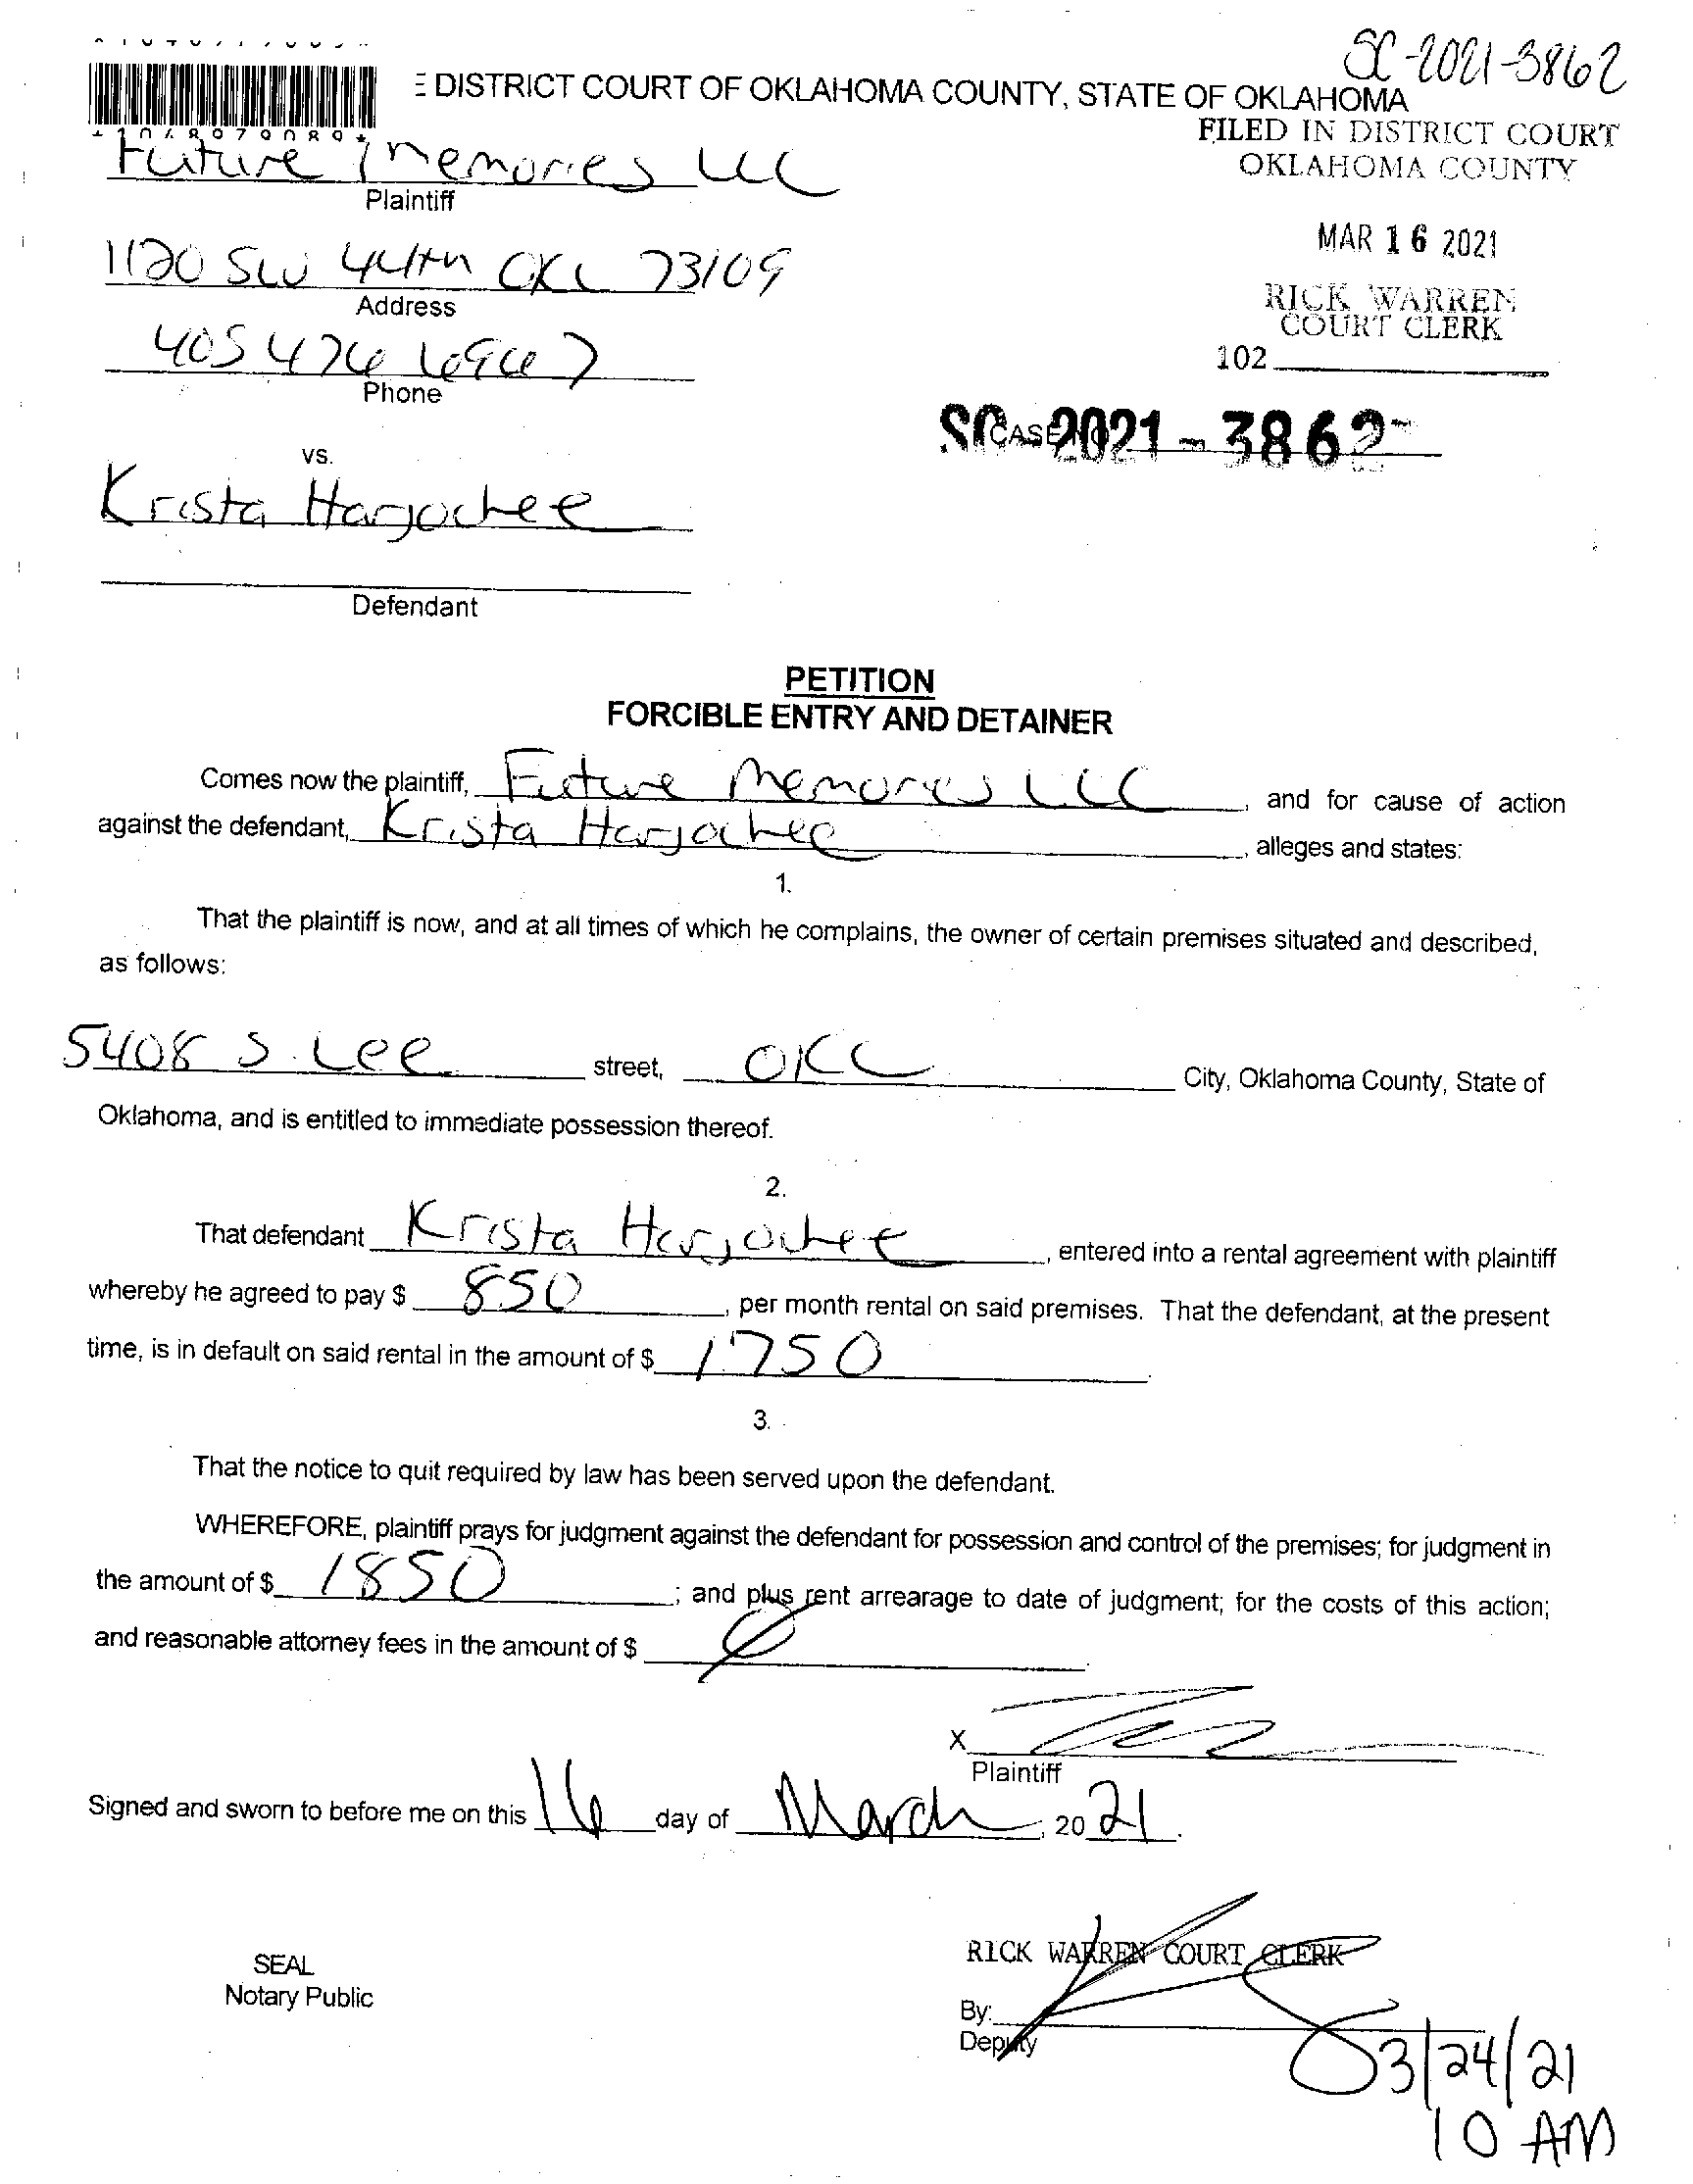 SC-2021-3862
E DISTRICT COURT OF OKLAHOMA COUNTY, STATE OF OKLAHOMA
*1048979089*
FILED IN DISTRICT COURT
OKLAHOMA COUNTY
Future Memories LLC
Plaintiff
MAR 16 2021
1120 SW 44th OKC 73109
Address
RICK WARREN
COURT CLERK
405 476 6967
Phone
102
SC-2021-3862
CASE NO.
vs.
Krista Harjochee
Defendant
PETITION
FORCIBLE ENTRY AND DETAINER
Comes now the plaintiff, Future Memories LLC, and for cause of action
against the defendant, Krista Harjochee, alleges and states:
1.
That the plaintiff is now, and at all times of which he complains, the owner of certain premises situated and described,
as follows:
5408 S. Lee street, OKC City, Oklahoma County, State of
Oklahoma, and is entitled to immediate possession thereof.
2.
That defendant Krista Harjochee, entered into a rental agreement with plaintiff
whereby he agreed to pay $ 850, per month rental on said premises. That the defendant, at the present
time, is in default on said rental in the amount of $ 1750.
3.
That the notice to quit required by law has been served upon the defendant.
WHEREFORE, plaintiff prays for judgment against the defendant for possession and control of the premises; for judgment in
the amount of $ 1850; and plus rent arrearage to date of judgment; for the costs of this action;
and reasonable attorney fees in the amount of $ 0.
X
Plaintiff
Signed and sworn to before me on this 16 day of March, 2021.
RICK WARREN COURT CLERK
SEAL
Notary Public
By:
Deputy
3/24/21
10 AM